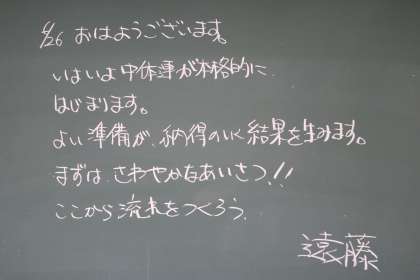 6/26 おはようございます。
いよいよ中体連が本格的に
はじまります。
よい準備が、納得のいく結果を生みます。
まずは、さわやかなあいさつ!!
ここから流れをつくろう。
遠藤